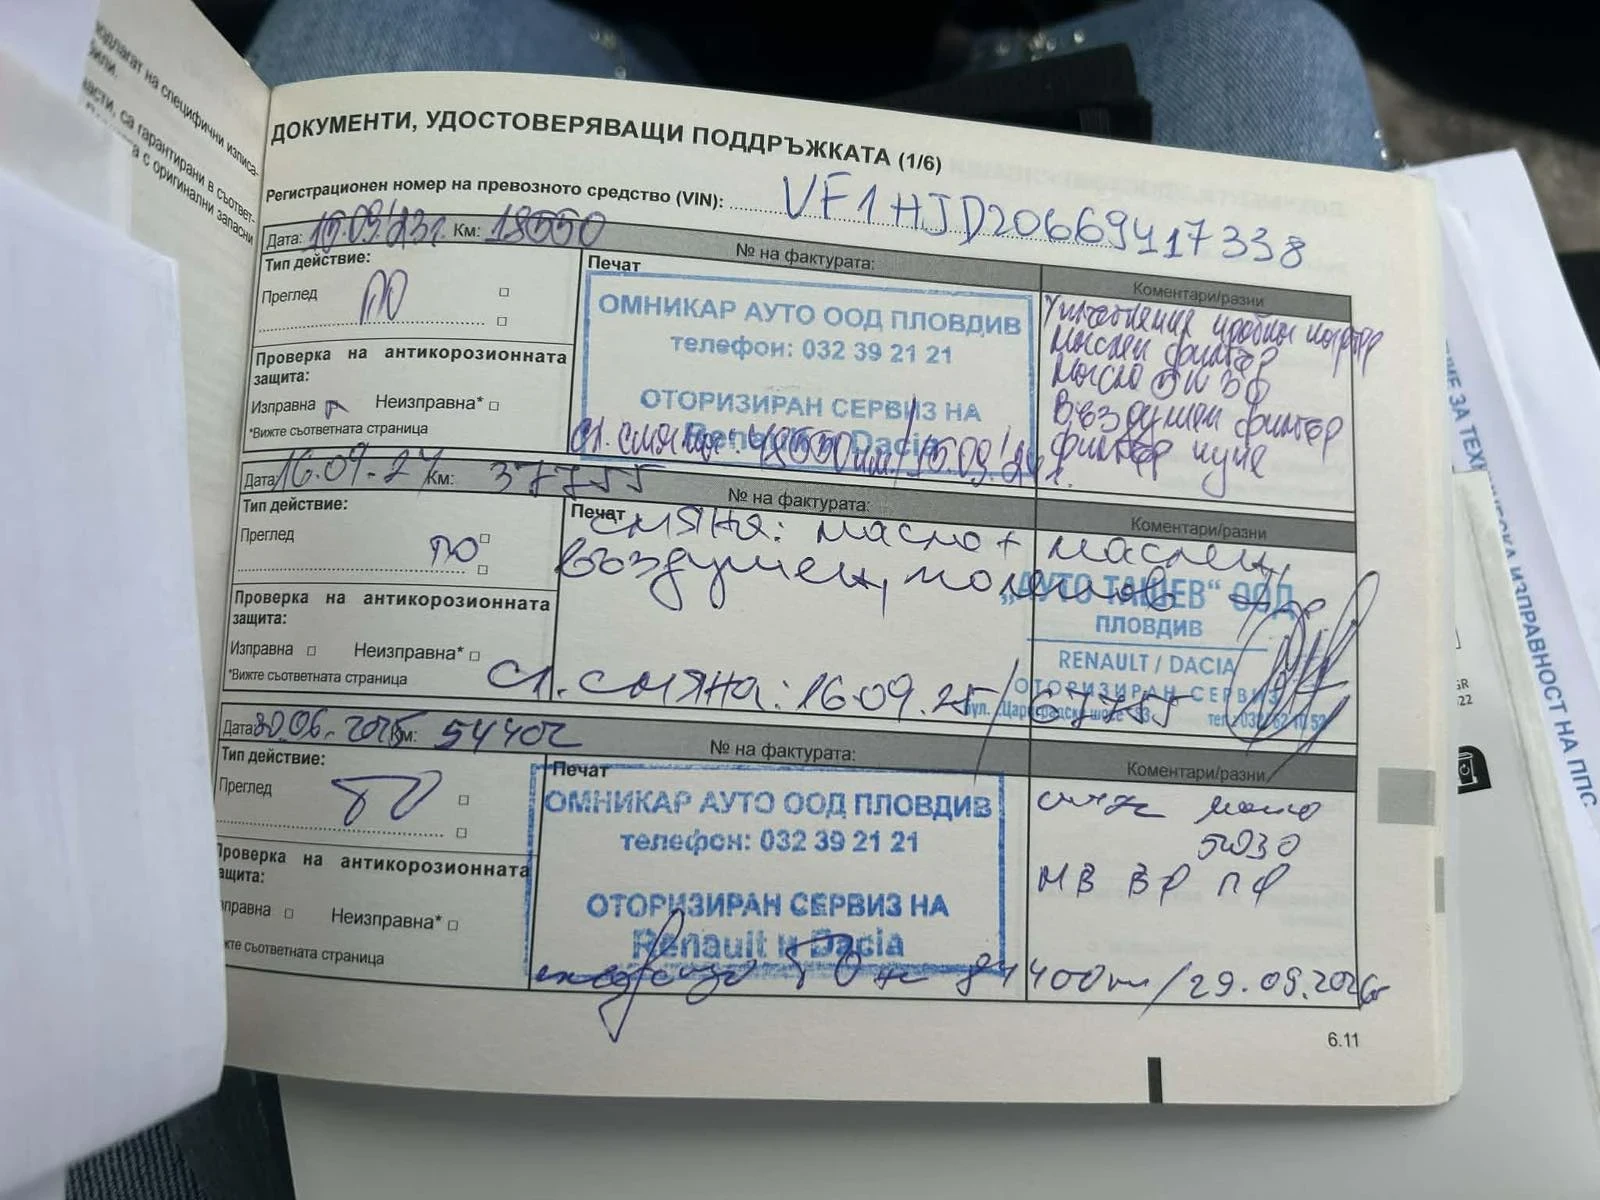 подлагат на специфични изписа-
били.
части, са гарантирани в съответ-
а с оригинални запасни
ДОКУМЕНТИ, УДОСТОВЕРЯВАЩИ ПОДДРЪЖКАТА (1/6)
Регистрационен номер на превозното средство (VIN): VF1HJD20669417338
Дата: 15.09.23г. Км: 18550
№ на фактурата:
Коментари/разни
Тип действие:
Преглед ПО
Проверка на антикорозионната
защита:
Изправна Неизправна*
*Вижте съответната страница
Печат
ОМНИКАР АУТО ООД ПЛОВДИВ
телефон: 032 39 21 21
ОТОРИЗИРАН СЕРВИЗ НА
Renault и Dacia
сл. смяна: 48550км./15.09.24г.
Маслен филтър
Масло 5W30
Въздушен филтър
филтър купе
Дата 16.09.24 Км: 37755
№ на фактурата:
Коментари/разни
Тип действие:
Преглед ПО
Проверка на антикорозионната
защита:
Изправна Неизправна*
*Вижте съответната страница
Печат
смяна: масло + маслен,
въздушен, поленов
„АУТО ТАШЕВ“ ООД
ПЛОВДИВ
RENAULT / DACIA
ОТОРИЗИРАН СЕРВИЗ
сл. смяна: 16.09.25/67755
Дата 30.06.2025 Км: 54402
№ на фактурата:
Коментари/разни
Тип действие:
Преглед ТО
Проверка на антикорозионната
защита:
Изправна Неизправна*
Вижте съответната страница
Печат
ОМНИКАР АУТО ООД ПЛОВДИВ
телефон: 032 39 21 21
ОТОРИЗИРАН СЕРВИЗ НА
Renault и Dacia
масло
5W30
МВ ВФ ПФ
ТО на 84400км/29.09.2026г
6.11
ИЕ ЗА ТЕХНИЧЕСКА ИЗПРАВНОСТ НА ППС